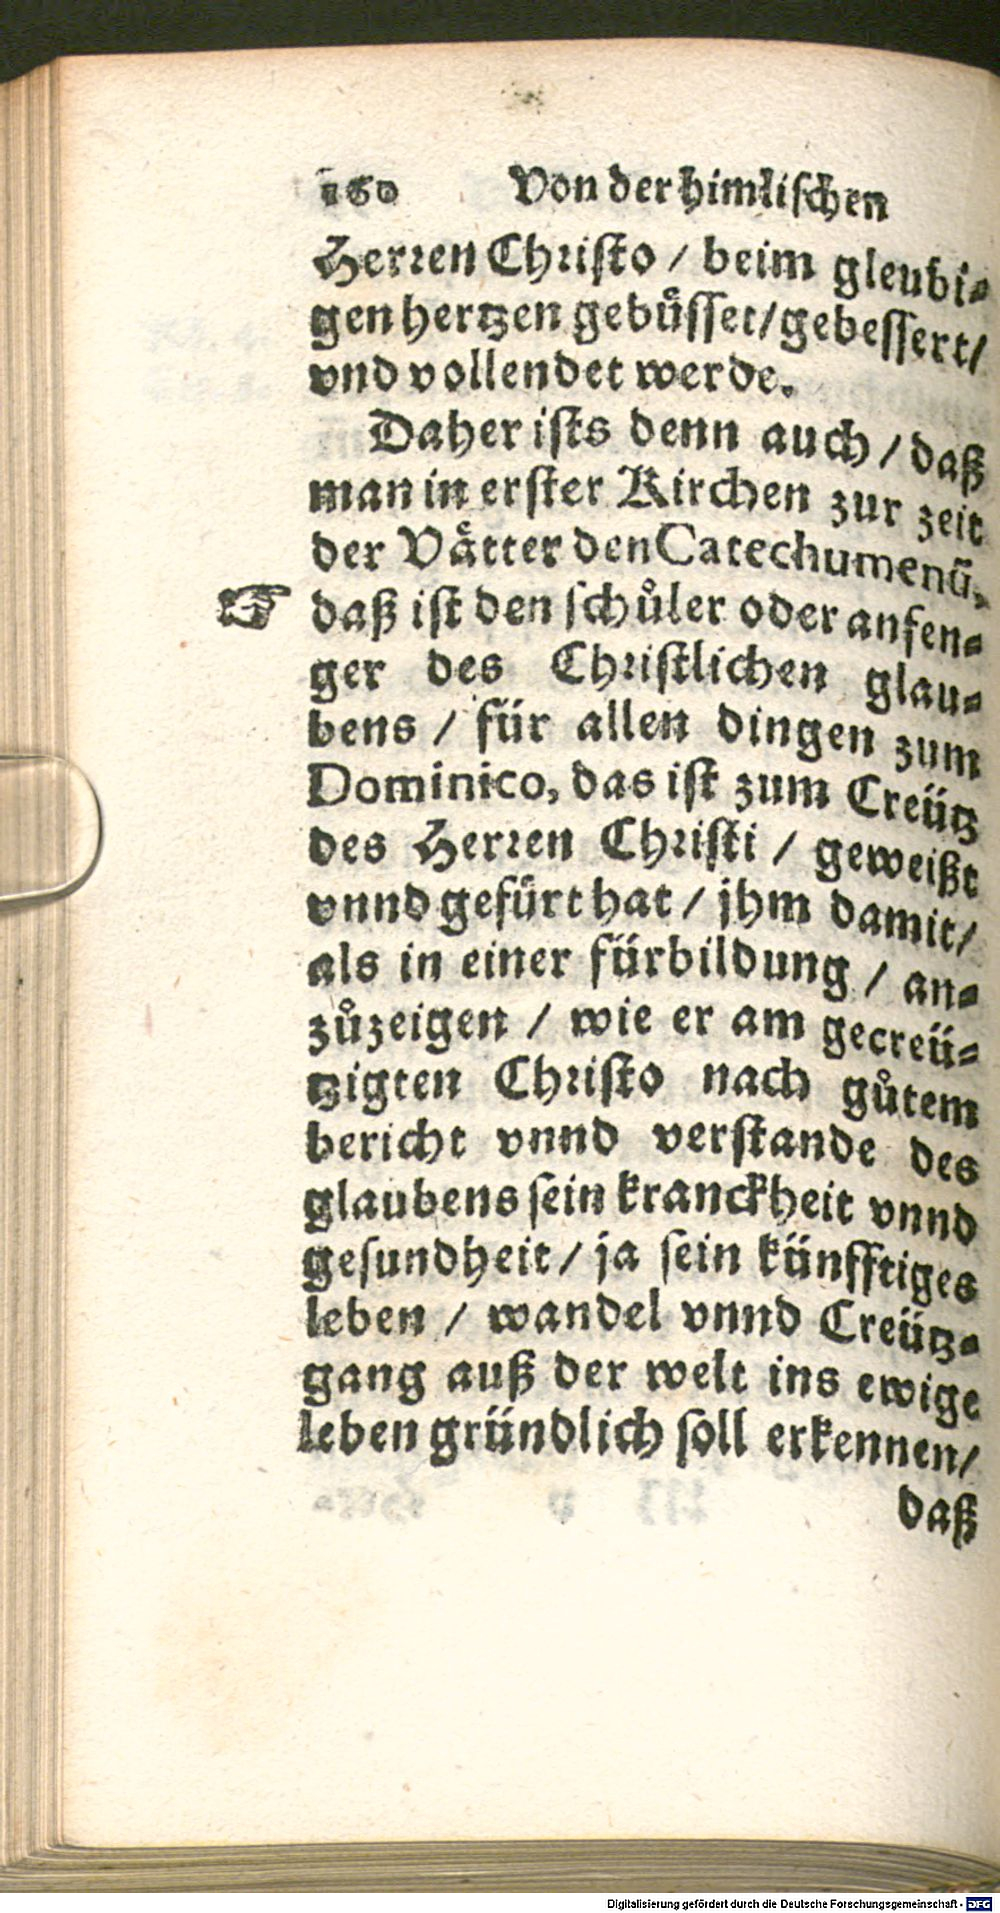 160 Von der himlischen
Herren Christo / beim gleubi⸗
gen hertzen gebüsset/gebessert/
vnd vollendet werde.
Daher ists denn auch / daß
man in erster Kirchen zur zeit
der Vätter den Catechumenū,
☞ daß ist den schůler oder anfen⸗
ger des Christlichen glau⸗
bens / für allen dingen zum
Dominico, das ist zum Creütz
des Herren Christi / geweißt
vnnd gefürt hat / jhm damit/
als in einer fürbildung / an⸗
zůzeigen / wie er am gecreü⸗
tzigten Christo nach gůtem
bericht vnnd verstande des
glaubens sein kranckheit vnnd
gesundheit / ja sein künfftiges
leben / wandel vnnd Creütz⸗
gang auß der welt ins ewige
leben gründlich soll erkennen/
daß
Digitalisierung gefördert durch die Deutsche Forschungsgemeinschaft - DFG